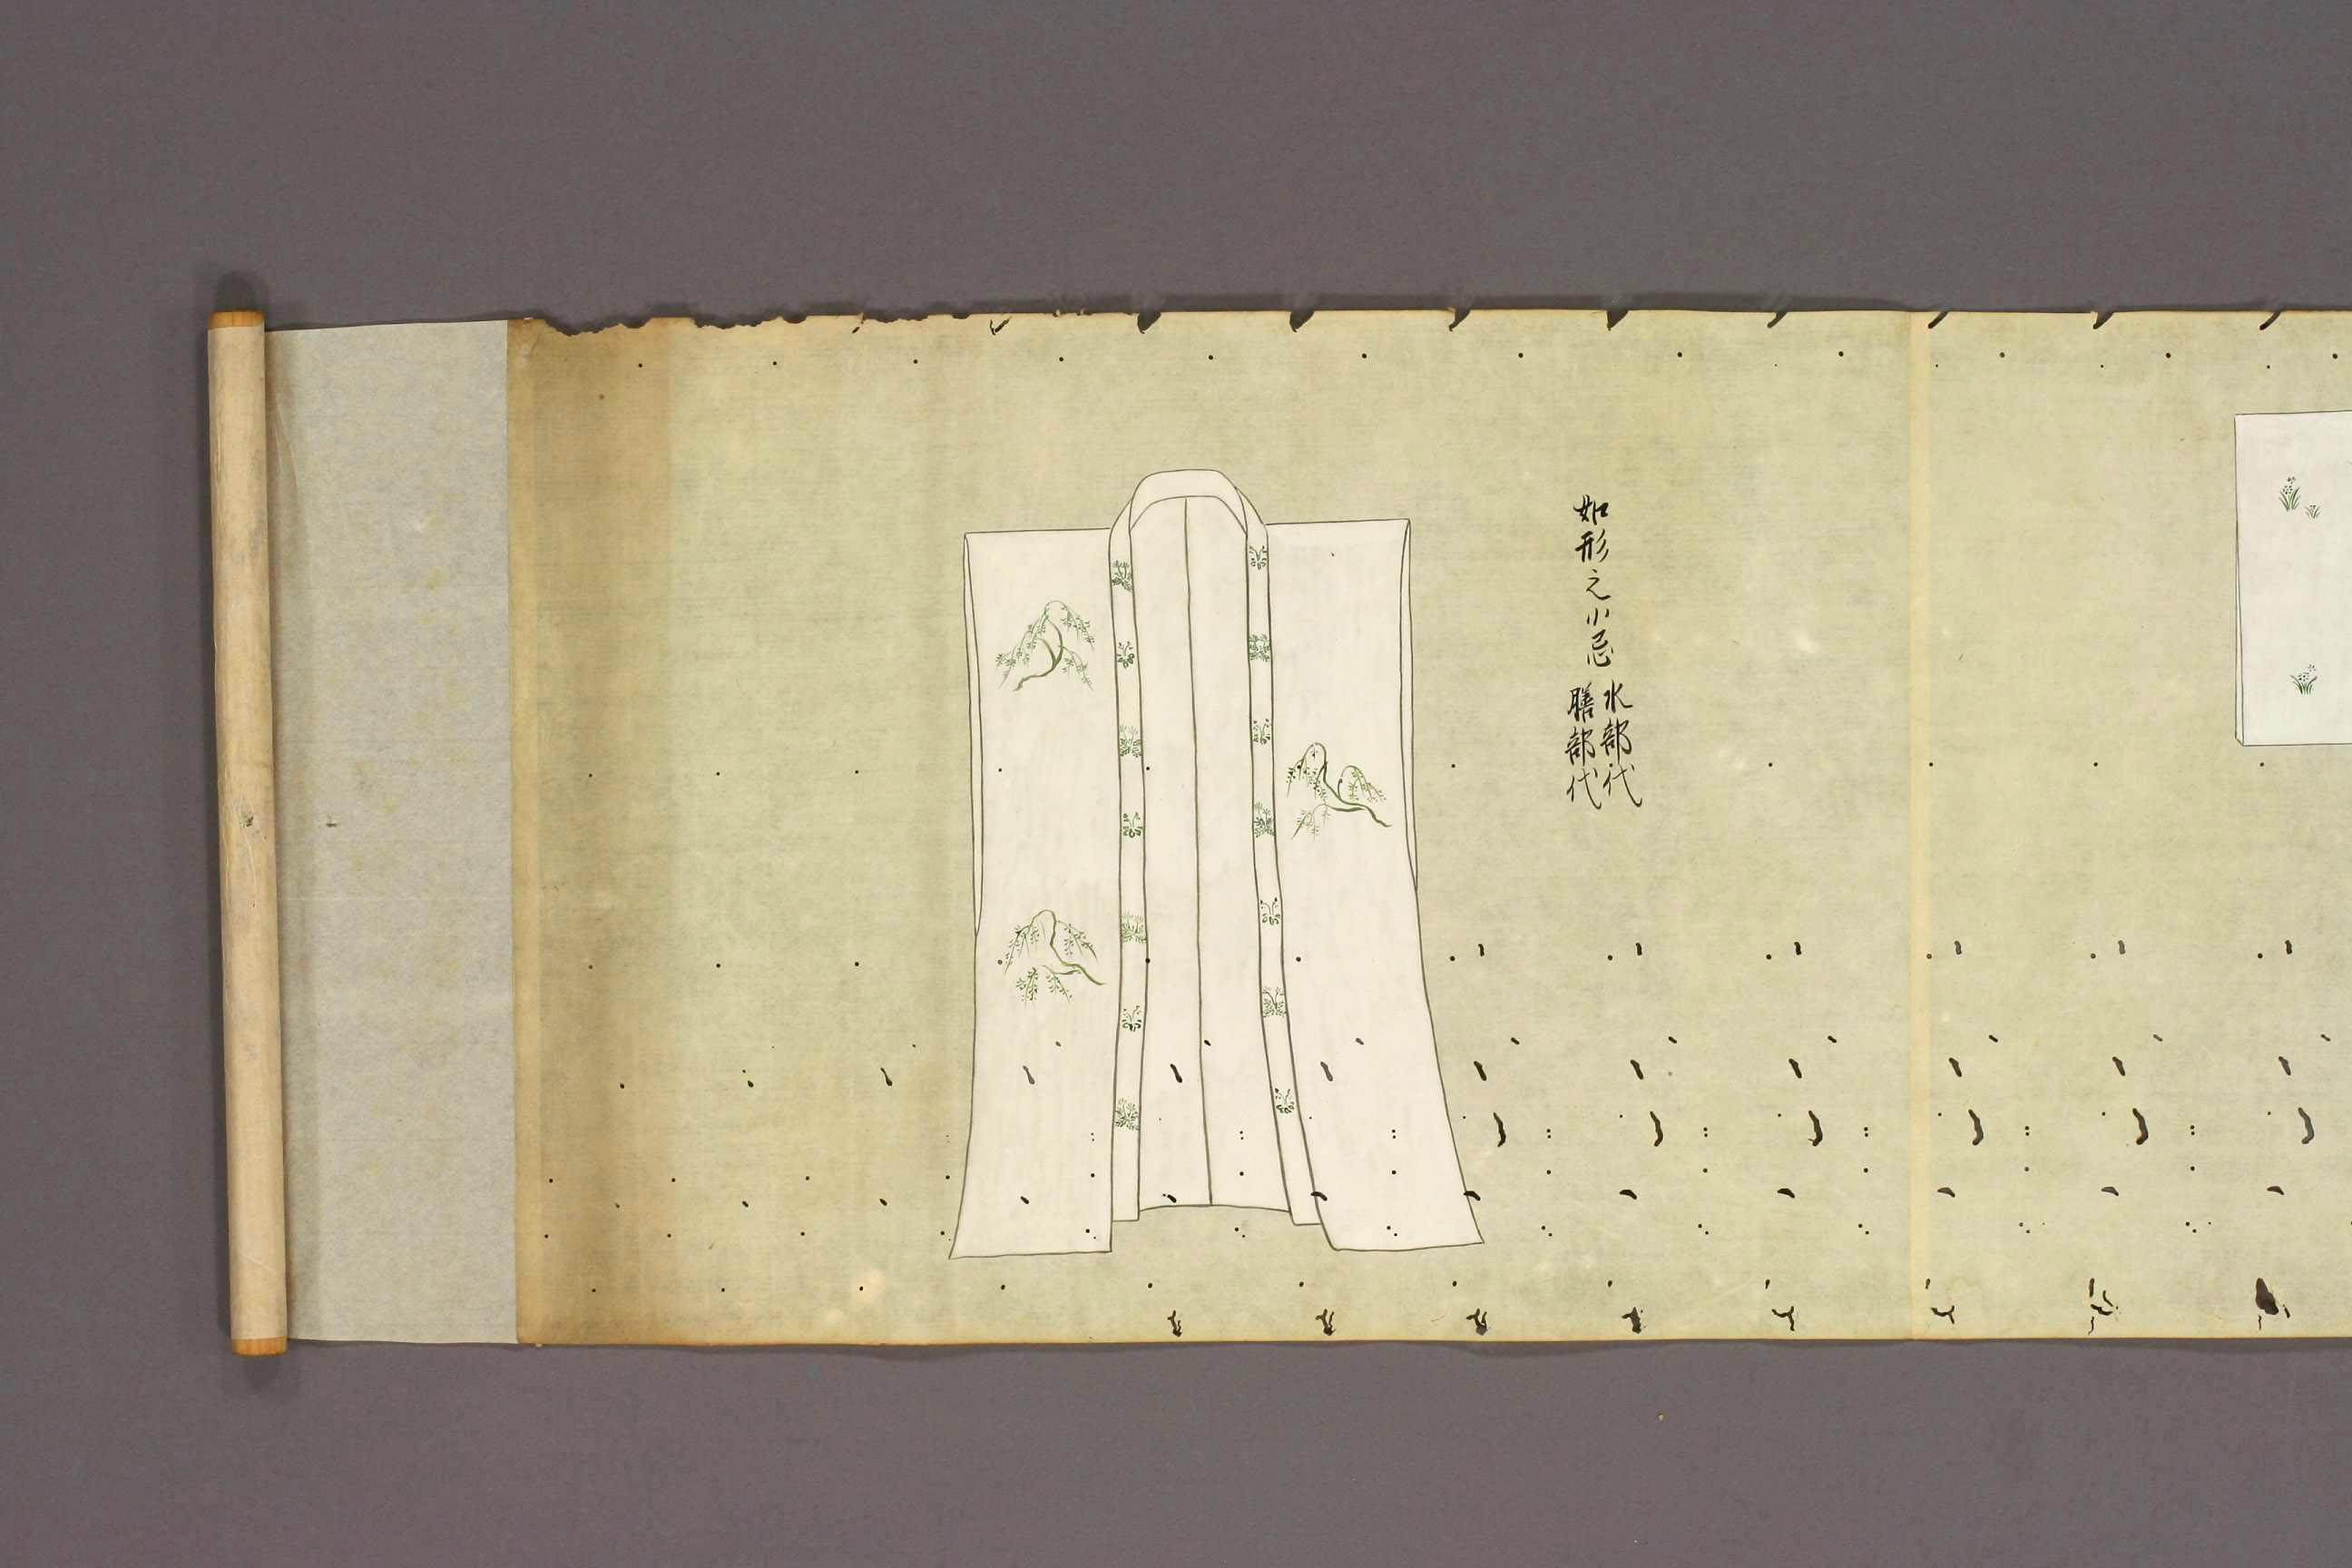 如形之小忌
水部代
膳部代